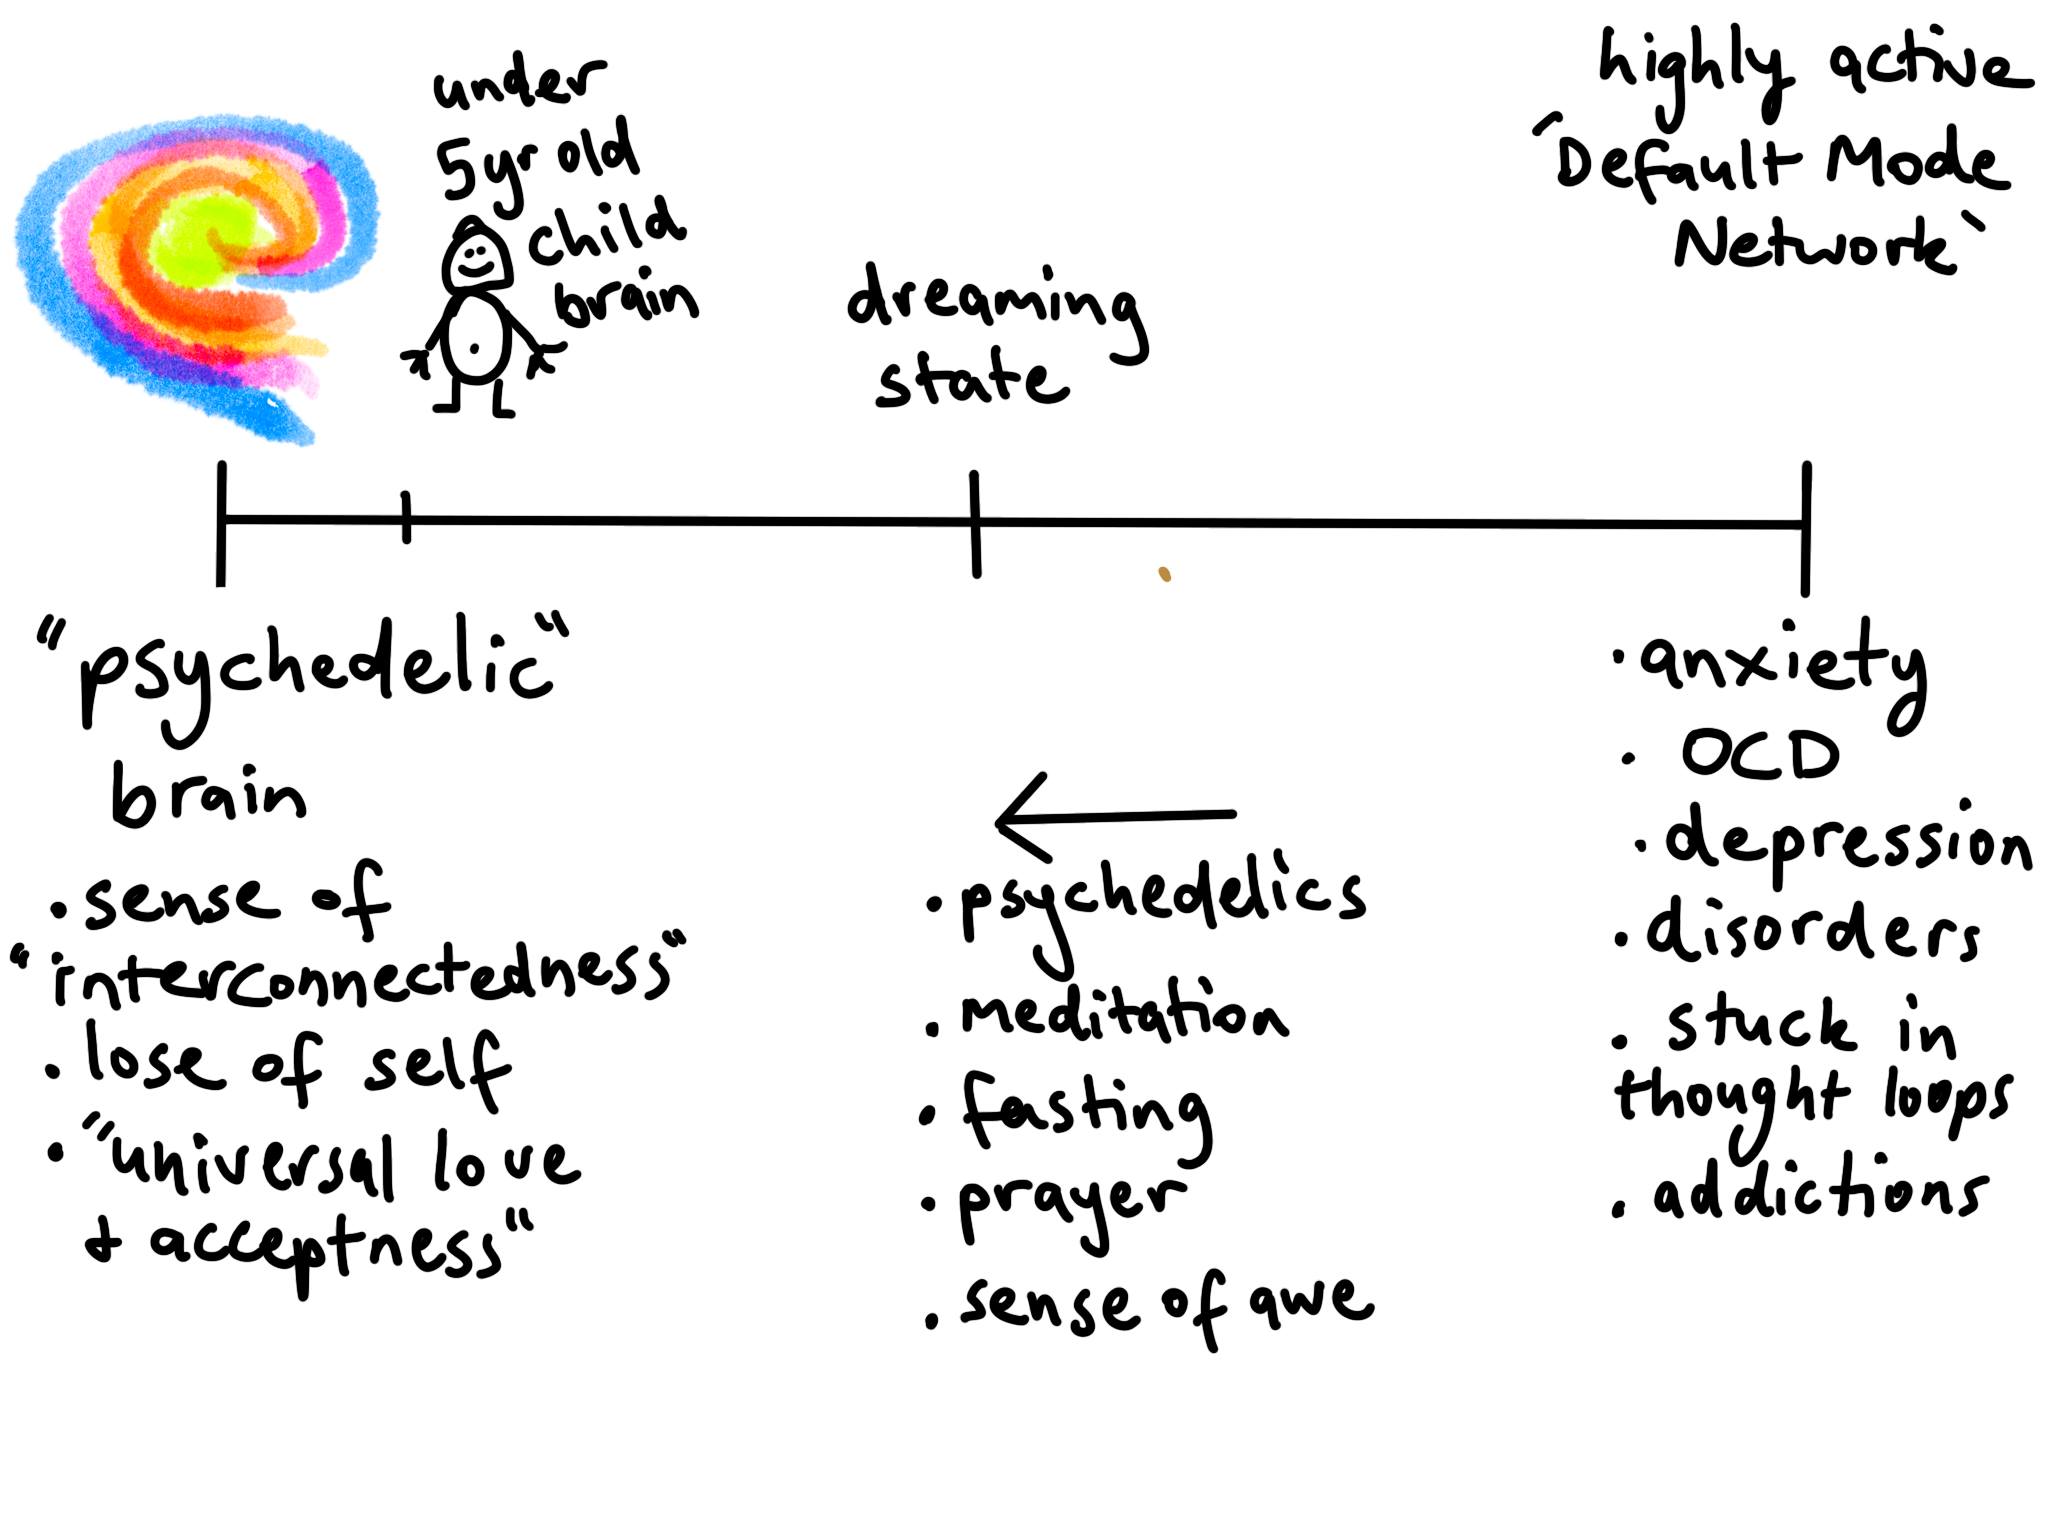 under
5yr old
child
brain
dreaming
state
highly active
"Default Mode
Network"
"psychedelic"
brain
• sense of
"interconnectedness"
• lose of self
• "universal love
& acceptness"
• psychedelics
• meditation
• fasting
• prayer
• sense of awe
• anxiety
• OCD
• depression
• disorders
• stuck in
thought loops
• addictions